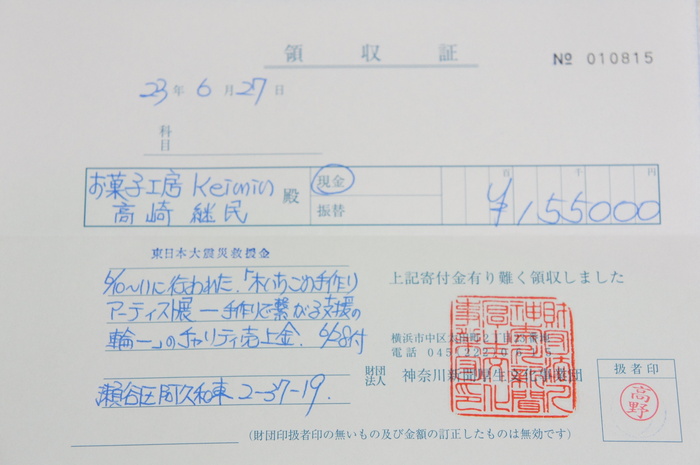 領収証
№ 010815
23年 6月27日
科目
お菓子工房 Keimin
高崎 継民 殿
現金
振替
百 千 円
¥155000
東日本大震災救援金
6/10〜11に行われた、「木いちごの手作り
アーティスト展 ー手作りで繋がる支援の
輪ー」のチャリティ売上金. 6/28付
瀬谷区阿久和東 2-37-19.
上記寄付金有り難く領収しました
横浜市中区
電話 045
財団法人 神奈川新聞厚生文化事業団
扱者印
高野
(財団印扱者印の無いもの及び金額の訂正したものは無効です)